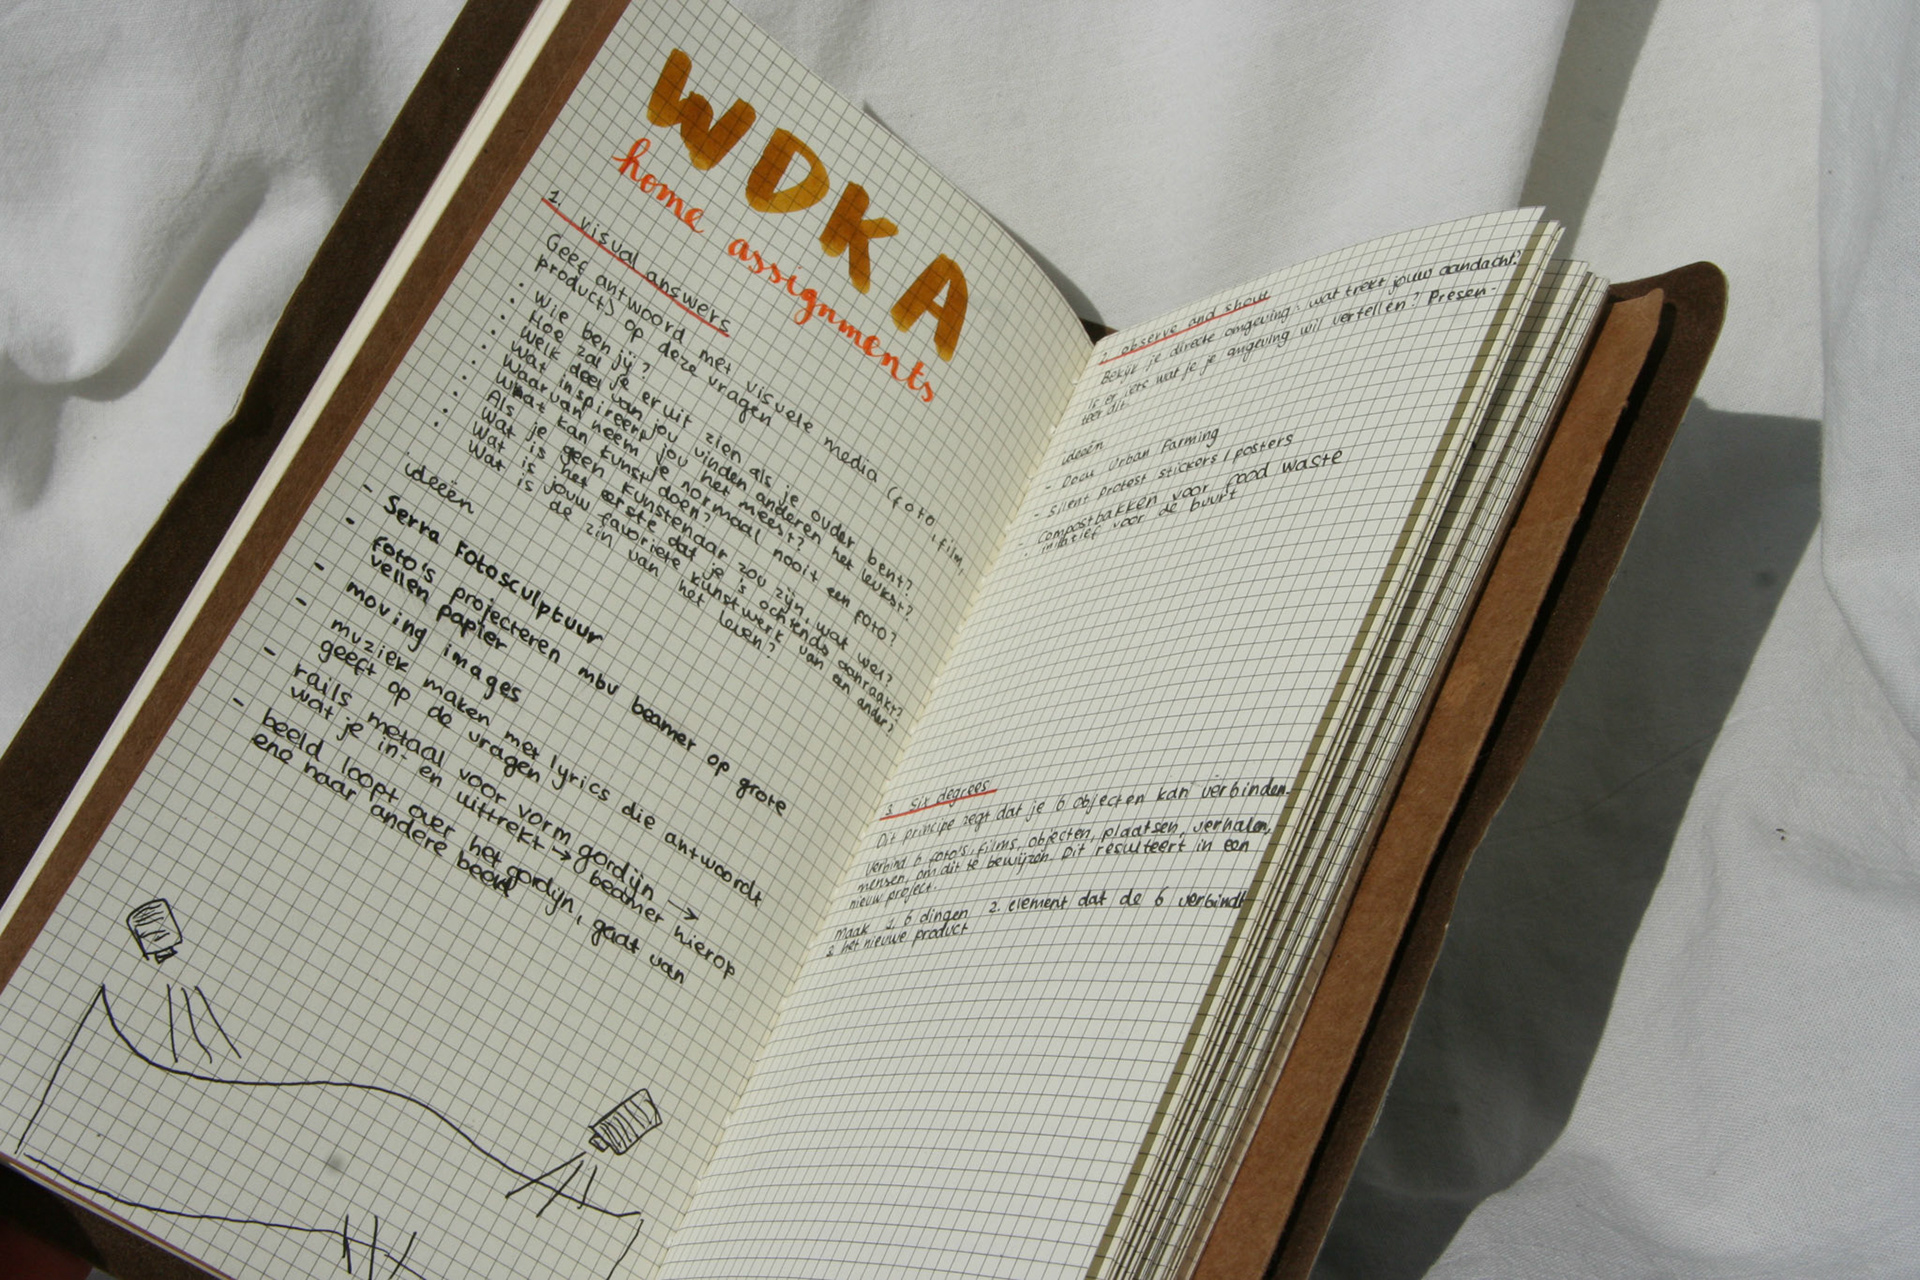 WDKA
home assignments
1. visual answers
Geef antwoord met visuele media (foto, film,
product) op deze vragen
· Wie ben jij?
· Hoe zal je eruit zien als je ouder bent?
· Welk deel van jou vinden anderen het leukst?
· Wat inspireert jou het meest?
· Waar van neem je normaal nooit een foto?
· What kan kunst doen?
· Als je geen kunstenaar zou zijn, wat wel?
· Wat is het eerste dat je 's ochtends aanraakt?
· Wat is jouw favoriete kunstwerk van en ander?
· Wat is de zin van het leven?
ideeën
- Serra Fotosculptuur
- foto's projecteren mbv beamer op grote
vellen papier
- moving images
- muziek maken met lyrics die antwoordt
geeft op de vragen
- rails metaal voor vorm gordijn →
wat je in- en uittrekt → beamer hierop
- beeld loopt over het gordijn, gaat van
ene naar andere beeld
2. observe and shout
Bekijk je directe omgeving: wat trekt jouw aandacht?
Is er iets wat je je omgeving wil vertellen? Presen-
teer dit.
ideeën
- Docu Urban Farming
- Silent Protest stickers / posters
- Compostbakken voor food waste
initiatief voor de buurt
3. Six degrees
Dit principe zegt dat je 6 objecten kan verbinden.
Verbind 6 foto's, films, objecten, plaatsen, verhalen,
mensen, om dit te bewijzen. Dit resulteert in een
nieuw project.
Maak 1. 6 dingen 2. element dat de 6 verbindt
3. het nieuwe product